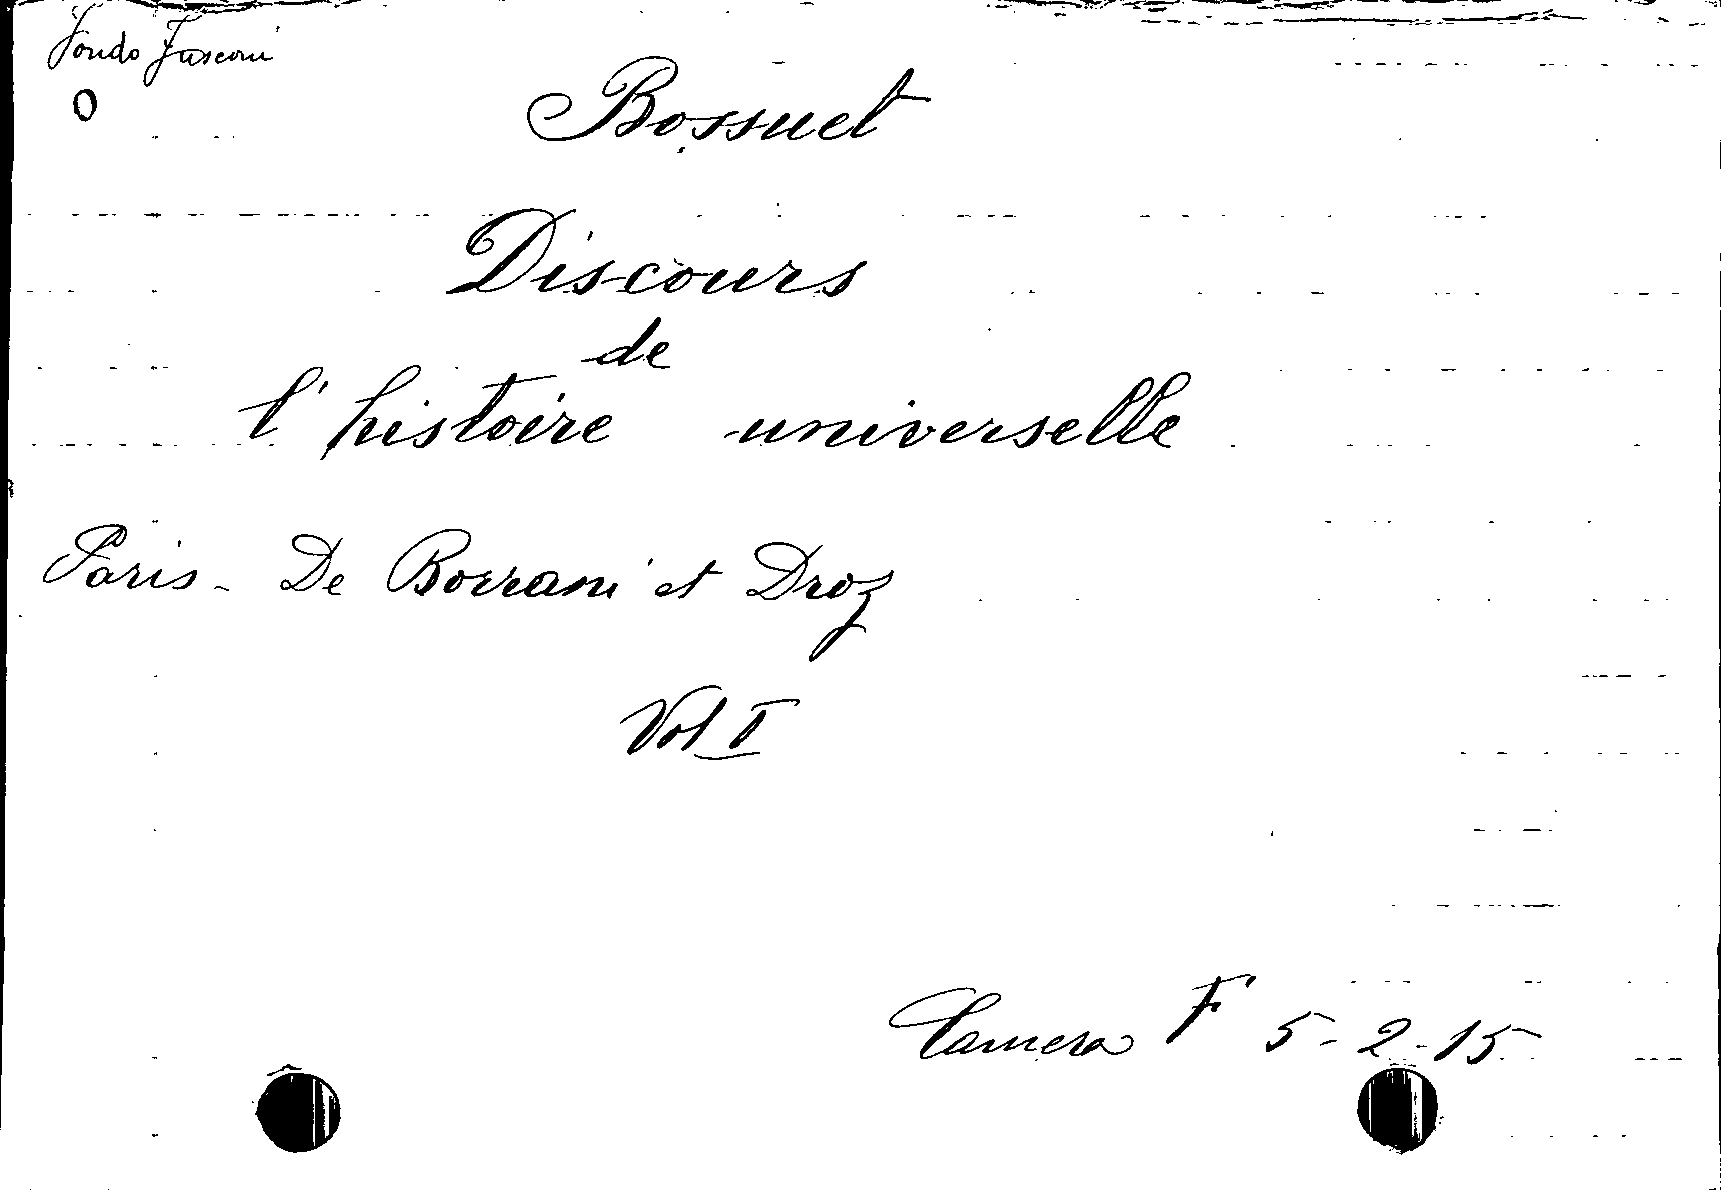 Fondo Fusconi
O
Bossuet
Discours
de
l'histoire universelle
Paris - De Borrani et Droz
Vol I
Camera F 5-2-15